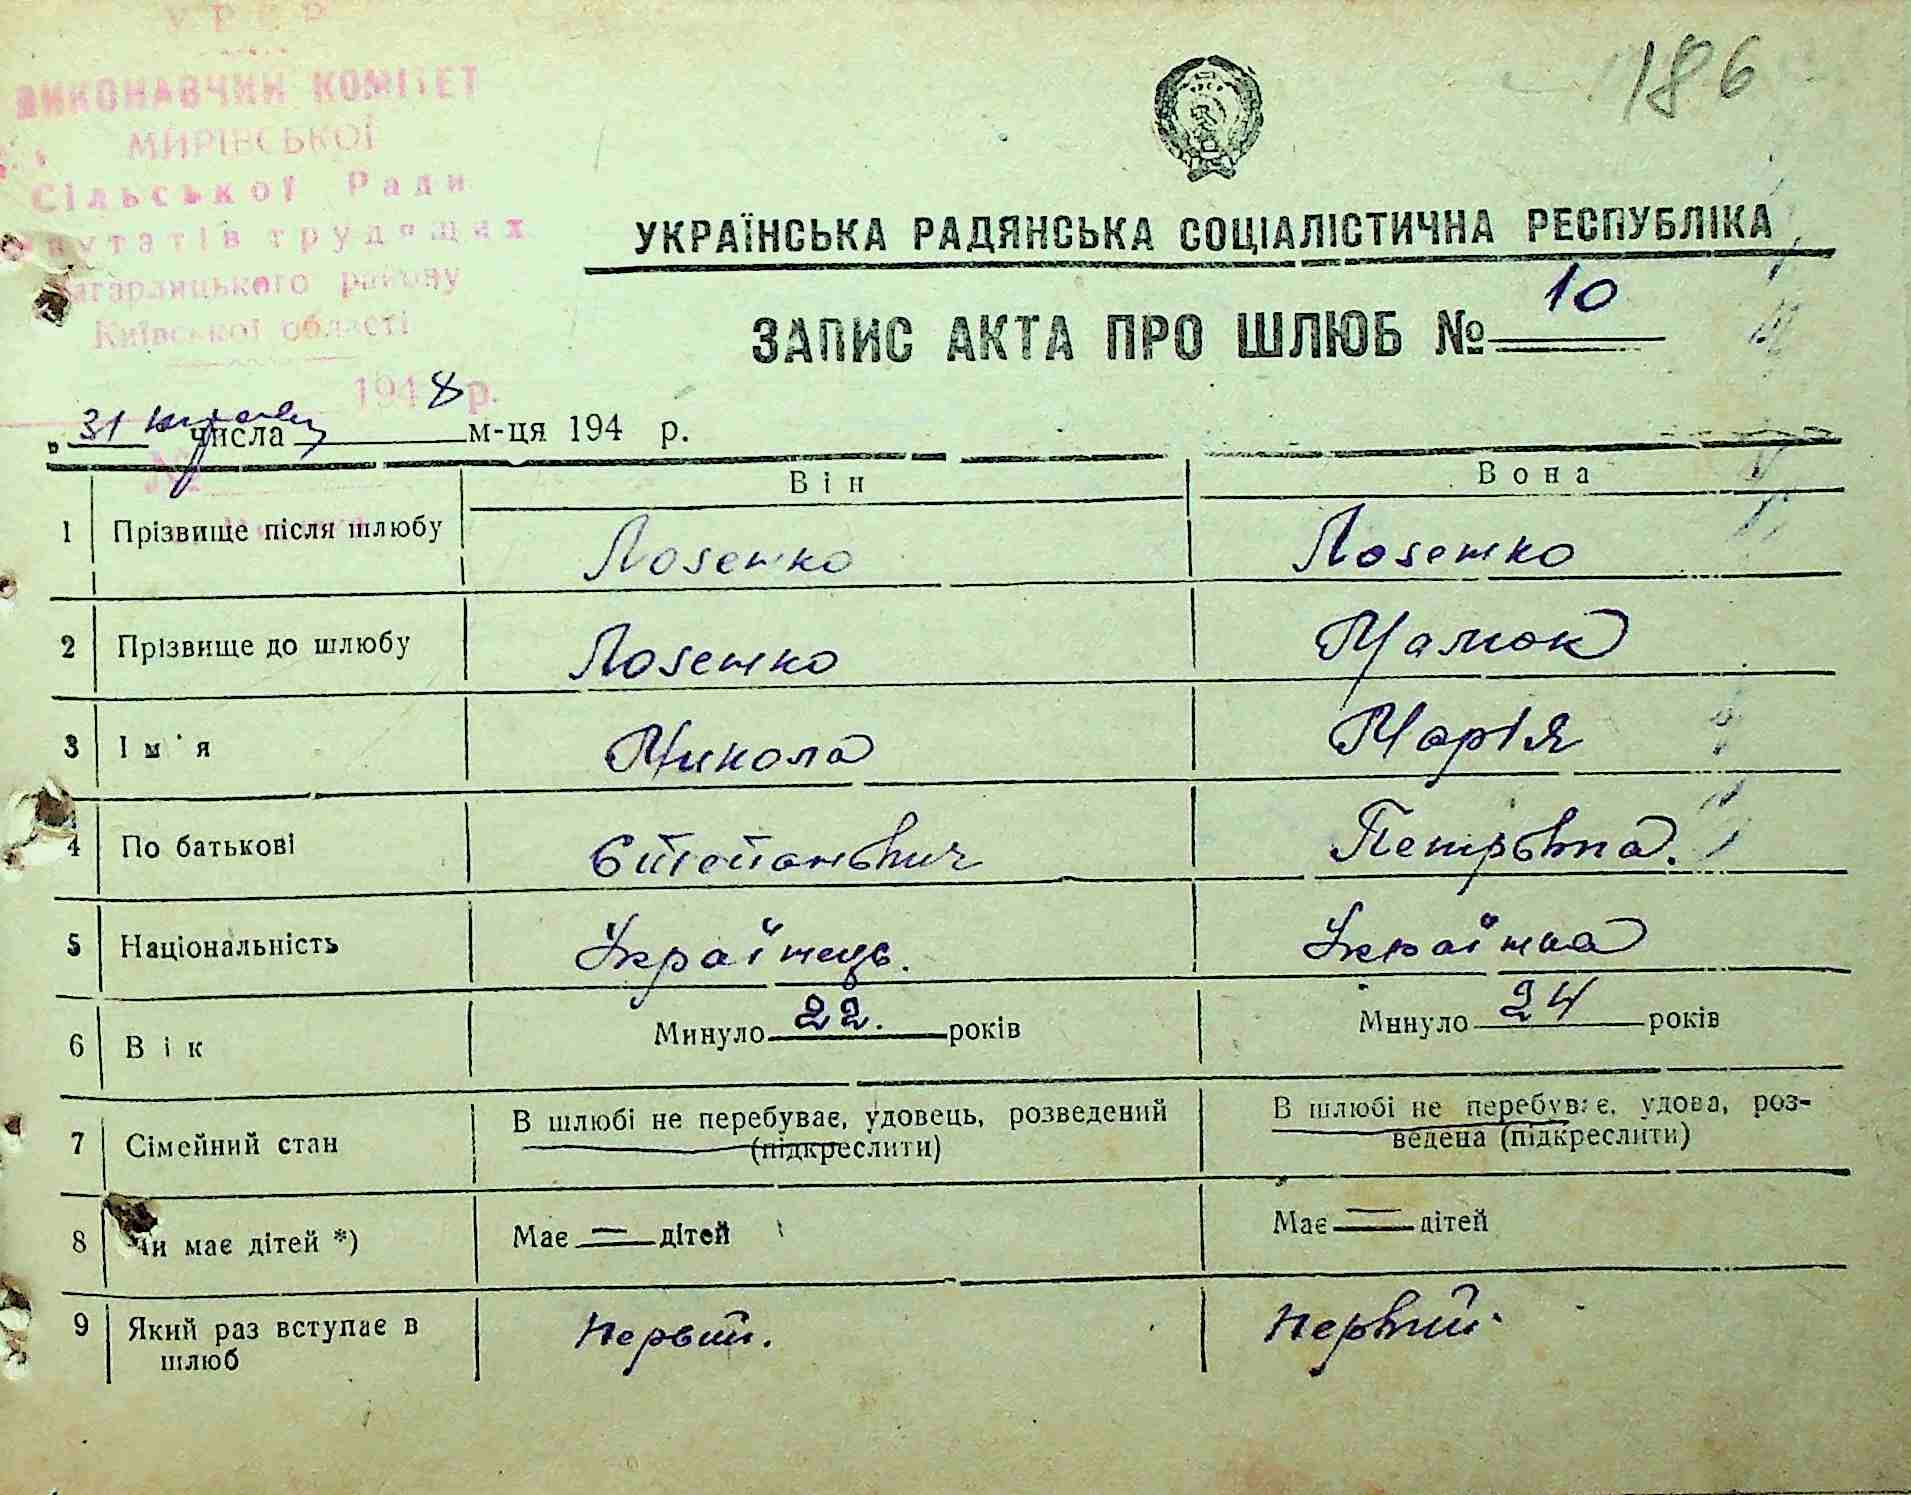 186
УРСР
ВИКОНАВЧИЙ КОМІТЕТ
МИРІВСЬКОЇ
Сільської Ради
депутатів трудящих
Кагарлицького району
Київської області
1948 р.
УКРАЇНСЬКА РАДЯНСЬКА СОЦІАЛІСТИЧНА РЕСПУБЛІКА
ЗАПИС АКТА ПРО ШЛЮБ № 10
„ 31 числа м-ця 194 р.
Він Вона
1 Прізвище після шлюбу Лозенко Лозенко
2 Прізвище до шлюбу Лозенко Мамок
3 Ім'я Микола Марія
4 По батькові Степанович Петрівна.
5 Національність Українець. Українка
6 Вік Минуло 22. років Минуло 24 років
7 Сімейний стан В шлюбі не перебуває, удовець, розведений В шлюбі не перебуває, удова, роз-
(підкреслити) ведена (підкреслити)
8 Чи має дітей *) Має — дітей Має — дітей
9 Який раз вступає в Первий. Первий.
шлюб